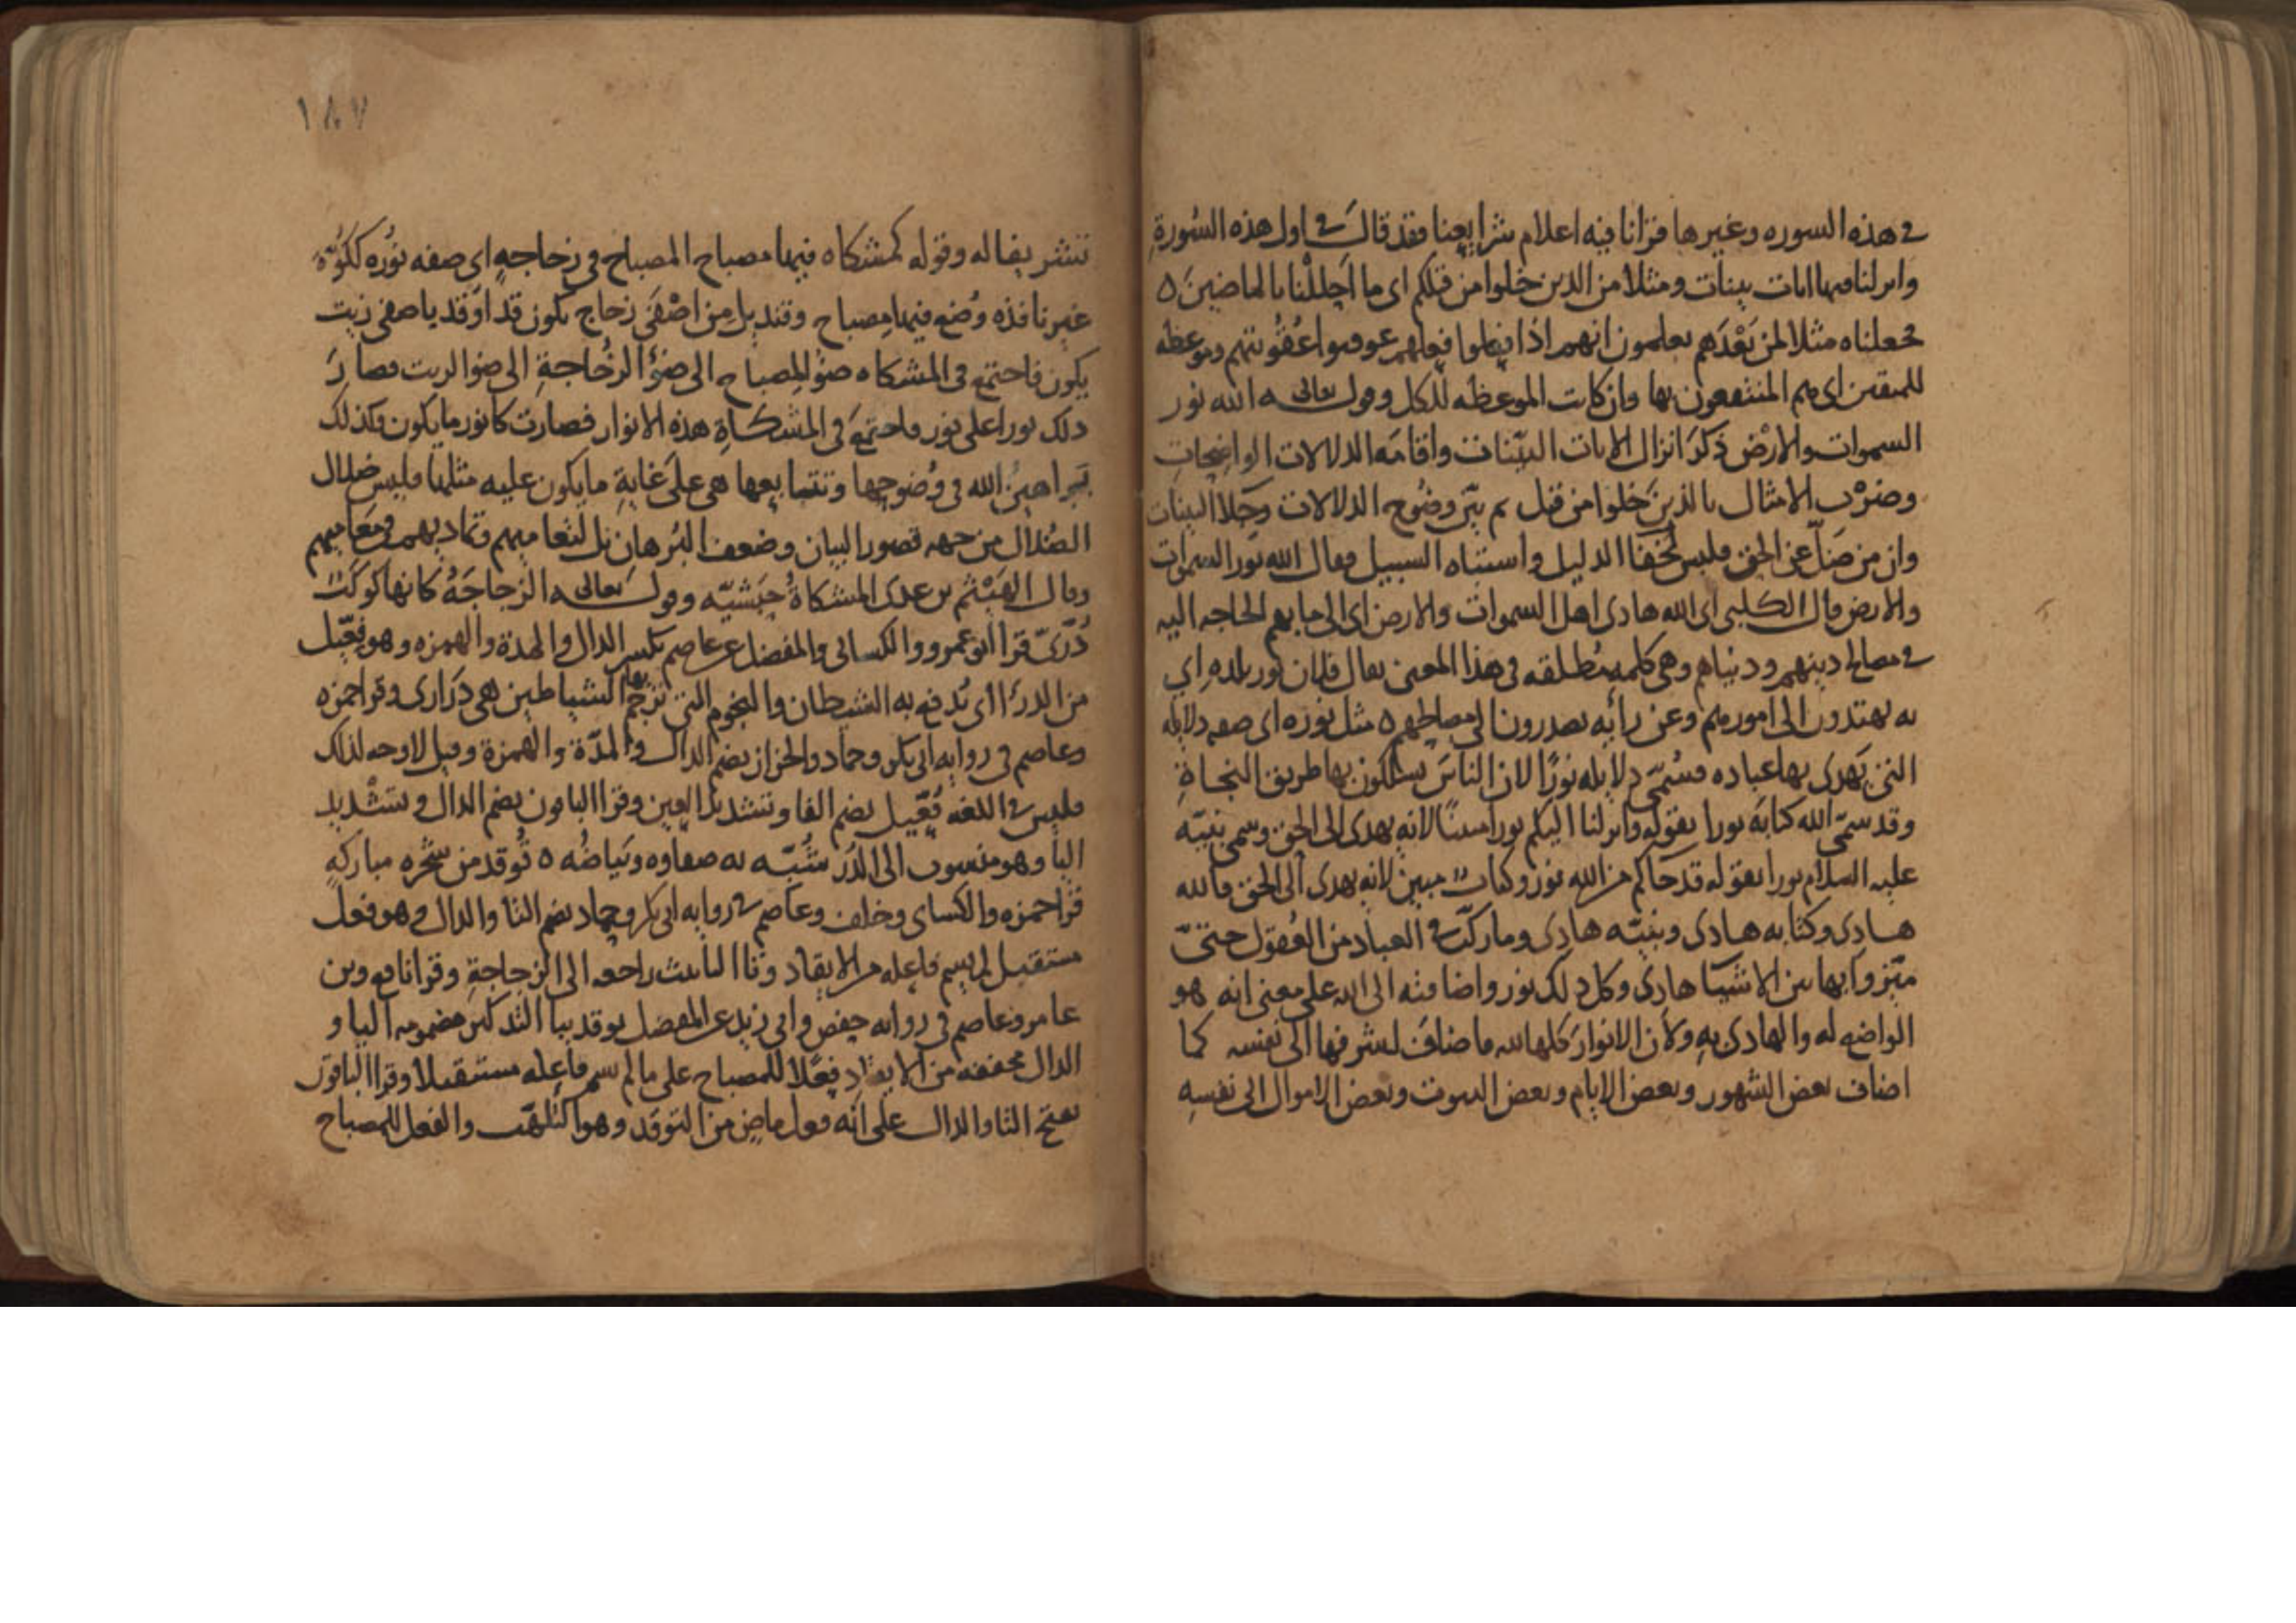 في هذه السوره وغيرها قرانا فيه اعلام شرايعنا فقد قال في اول هذه السورة
وانزلنا فيها ايات بينات ومثلا من الذين خلوا من قبلكم اي ما احللنا بالماضين ٥
فجعلناه مثلا لمن بعدهم يعلمون انهم اذا فعلوا فعلهم عوقبوا عقوبتهم وموعظه
للمتقين اي هم المنتفعون بها وان كانت الموعظه للكل وقوله تعالى الله نور
السموات والارض ذكر انزال الايات البينات واقامه الدلالات الواضحات
وضرب الامثال بالذين خلوا من قبل ثم بين وضوح الدلالات وجلا البينات
وان من ضل عن الحق فليس لخفا الدليل واشتباه السبيل فقال الله نور السموات
والارض قال الكلبي اي الله هادي اهل السموات والارض اي الى ما بهم الحاجه اليه
في مصالح دينهم ودنياهم وهي كلمه مطلقه في هذا المعنى يقال فلان نور بلده اي
به يهتدون الى امورهم وعن رايه يصدرون في مصالحهم ٥ مثل نوره اي صفه دلايله
التي يهدي بها عباده فسمى دلايله نورا لان الناس يسلكون بها طريق النجاة
وقد سمى الله كتابه نورا بقوله وانزلنا اليكم نورا مبينا لانه يهدي الى الحق وسمى نبيه
عليه السلام نورا بقوله قد جاكم من الله نور وكتاب مبين لانه يهدي الى الحق فالله
هادي وكتابه هادي ونبيه هادي وما ركب في العباد من العقول حتى
ميزوا بها بين الاشيا هادي وكل ذلك نور واضافته الى الله على معنى انه هو
الواضع له والهادي به ولان الانوار كلها لله فاضاف لشرفها الى نفسه كما
اضاف بعض الشهور وبعض الايام وبعض البيوت وبعض الاموال الى نفسه
١٨٧
تشريفا له وقوله كمشكاه فيها مصباح المصباح في زجاجه اي صفه نوره ككوة
غير نافذه وضع فيها مصباح وقنديل من اصفى زجاج يكون قد اوقد باصفى زيت
يكون فاجتمع في المشكاه ضو المصباح الى ضوء الزجاجة الى ضو الزيت فصار
ذلك نورا على نور فاجتمع في المشكاة هذه الانوار فصارت كانور ما يكون فكذلك
براهين الله في وضوحها وتتابعها هي على غاية ما يكون عليه مثلها فليس ضلال
الضلال من جهه قصور البيان وضعف البرهان بل لتعاميهم وتماديهم في معاصيهم
وقال الهيثم بن عدي المشكاة حبشيه وقوله تعالى الزجاجة كانها كوكب
دري قرا ابو عمرو والكسائي والمفضل عن عاصم بكسر الدال والمدة والهمزه وهو فعيل
من الدرء اي يدفع به الشيطان والنجوم التي ترجم بها الشياطين هي دراري وقرا حمزه
وعاصم في روايه ابي بكر وحماد والخزاز بضم الدال والمدة والهمزة وقيل لا وجه لذلك
فليس في اللغه فعيل بضم الفا وتشديد العين وقرا الباقون بضم الدال وتشديد
اليا وهو منسوب الى الدر شبه به صفاوه وبياضه ٥ توقد من شجره مباركه
قرا حمزه والكساي وخلف وعاصم في روايه ابي بكر وحماد بضم التا والدال وهو فعل
مستقبل لم يسم فاعله من الايقاد وتا التانيث راجعه الى الزجاجة وقرا نافع وبن
عامر وعاصم في روايه حفص وابي زيد عن المفضل يوقد بيا التذكير مضمومه اليا و
الدال مخففه من الايقاد فعلا للمصباح على ما لم يسم فاعله مستقبلا وقرا الباقون
بفتح التا والدال على انه فعل ماض من التوقد وهو التلهب والفعل للمصباح